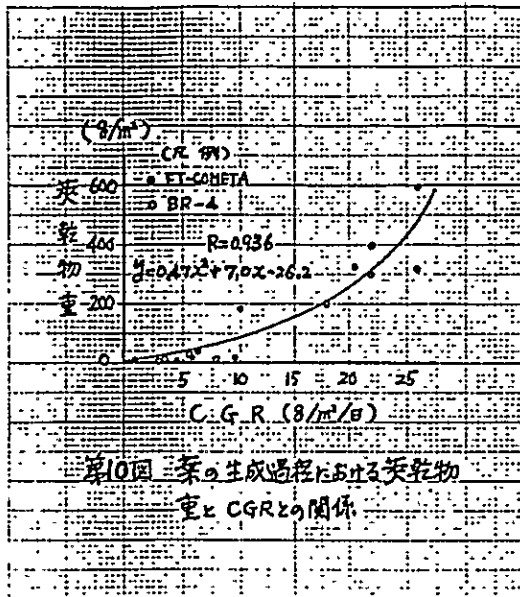 (g/m²)
(凡例)
• FT-COMETA
○ BR-4
莢乾物重
600
400
200
0
R=0.936
y=0.47x²+7.0x-26.2
5 10 15 20 25
C G R (g/m²/日)
第10図 莢の生成過程における莢乾物
重とCGRとの関係